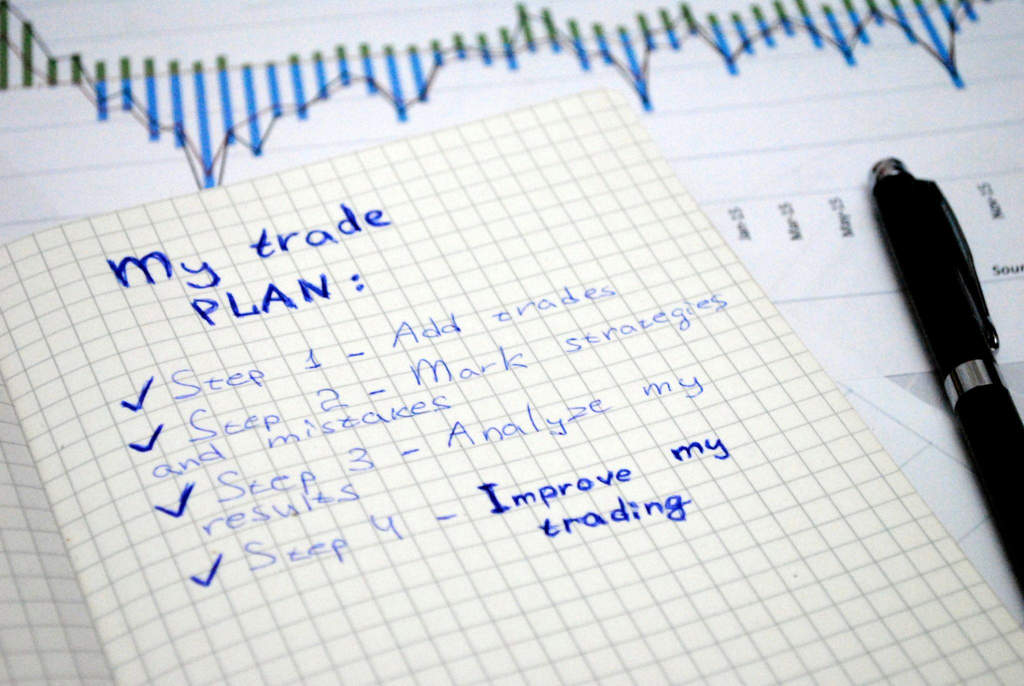 My trade
PLAN:
✓ Step 1 - Add trades
✓ Step 2 - Mark strategies
and mistakes
✓ Step 3 - Analyze my
results
✓ Step 4 - Improve my
trading
Jan-15
Mar-15
May-15
Nov-15
Sour